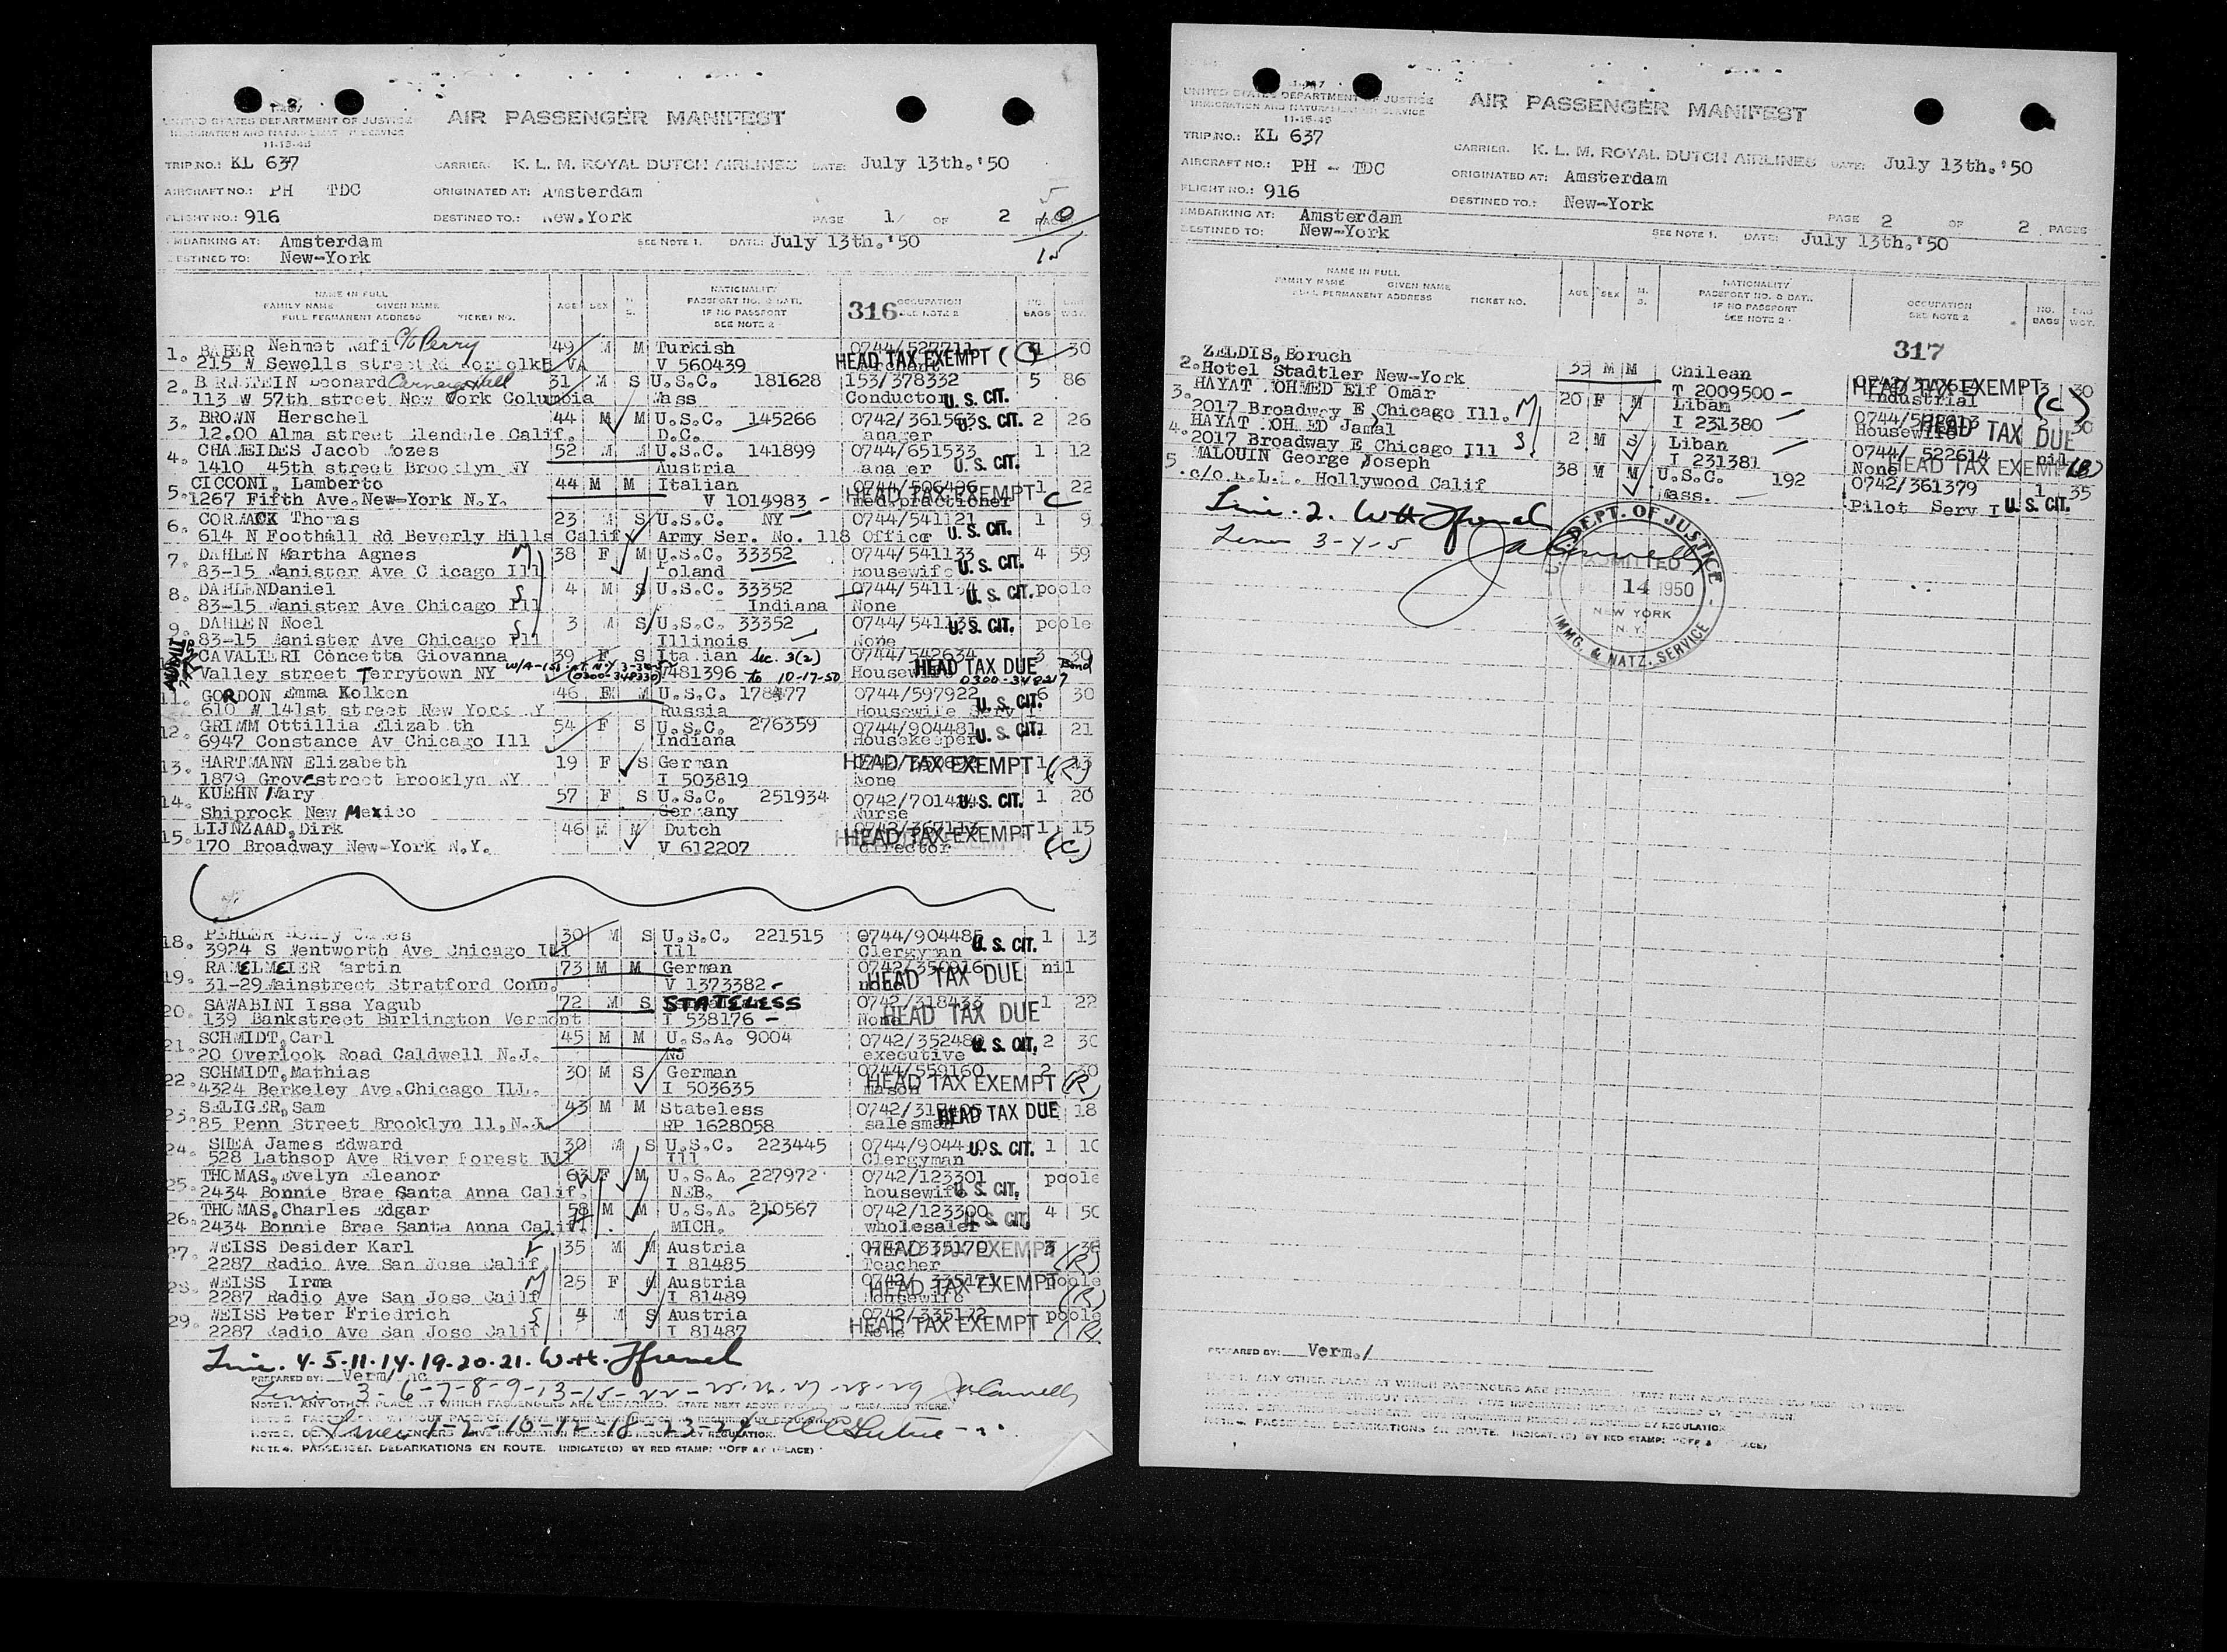 UNITED STATES DEPARTMENT OF JUSTICE
IMMIGRATION AND NATURALIZATION SERVICE
11-15-46
AIR PASSENGER MANIFEST
TRIP NO.: KL 637 CARRIER: K. L. M. ROYAL DUTCH AIRLINES DATE: July 13th.'50
AIRCRAFT NO.: PH TDC ORIGINATED AT: Amsterdam
FLIGHT NO.: 916 DESTINED TO.: New.York PAGE 1/ OF 2 PAGES
5
10
15
EMBARKING AT: Amsterdam SEE NOTE 1. DATE: July 13th.'50
DESTINED TO: New-York
NAME IN FULL
FAMILY NAME GIVEN NAME
FULL PERMANENT ADDRESS TICKET NO.
AGE SEX M. S.
NATIONALITY
PASSPORT NO. & DATE
IF NO PASSPORT
SEE NOTE 2
316 OCCUPATION
SEE NOTE 2
NO. BAGS BAG WGT.
1. BABER Nehmet Rafi C/o Perry 49 M M Turkish 0744/527711 30
215 W Sewells street Rd Norfolk VA V 560439 HEAD TAX EXEMPT (C)
2. BERNSTEIN Leonard Carnegie Hall 31 M S U.S.C. 181628 153/378332 5 86
113 W 57th street New York Columbia Mass Conductor U.S. CIT.
3. BROWN Herschel 44 M M U.S.C. 145266 0742/361563 U.S. CIT. 2 26
12.00 Alma street Glendale Calif. D.C. Manager
4. CHAMEIDES Jacob Mozes 52 M M U.S.C. 141899 0744/651533 1 12
1410 45th street Brooklyn NY Austria Manager U.S. CIT.
5. CICCONI, Lamberto 44 M M Italian 0744/506496 1 22
1267 Fifth Ave.New-York N.Y. V 1014983 - Med.practioner HEAD TAX EXEMPT C
6. CORMACK Thomas 23 M S U.S.C. NY 0744/541121 1 9
614 N Foothill Rd Beverly Hills Calif Army Ser. No. 118 Officer U.S. CIT.
7. DAHLEN Martha Agnes M 38 F M U.S.C. 33352 0744/541133 4 59
83-15 Manister Ave Chicago Ill Poland Housewife U.S. CIT.
8. DAHLEN Daniel S 4 M S U.S.C. 33352 0744/541134 U.S. CIT. poole
83-15 Manister Ave Chicago Ill Indiana None
9. DAHLEN Noel S 3 M S U.S.C. 33352 0744/541135 U.S. CIT. poole
83-15 Manister Ave Chicago Ill Illinois None
ADMIT
CAVALIERI Concetta Giovanna 39 F S Italian Sec. 3(2) 0744/542634 3 30
Valley street Terrytown NY V481396 to 10-17-50 Housewife HEAD TAX DUE Bond
(0300-348330) 0300-348217
11. GORDON Emma Kolken 46 F M U.S.C. 178477 0744/597922 6 30
610 W 141st street New York NY Russia Housewife Serv I U.S. CIT.
12. GRIMM Ottillia Elizabeth 54 F S U.S.C. 276359 0744/904481 1 21
6947 Constance Av Chicago Ill Indiana Housekeeper U.S. CIT.
13. HARTMANN Elizabeth 19 F S German HEAD TAX EXEMPT (R) 1 13
1879 Grovestreet Brooklyn NY I 503819 None
14. KUEHN Mary 57 F S U.S.C. 251934 0742/701424 U.S. CIT. 1 20
Shiprock New Mexico Germany Nurse
15. LIJNZAAD, Dirk 46 M M Dutch 0742/367113 1 15
170 Broadway New-York N.Y. V 612207 director HEAD TAX EXEMPT (C)
18. PEHLER Henry James 30 M S U.S.C. 221515 0744/904485 1 13
3924 S Wentworth Ave Chicago Ill Ill Clergyman U.S. CIT.
19. RAMELMEIER Martin 73 M M German 0742/350016 nil
31-29 Mainstreet Stratford Conn. V 1373382 - none HEAD TAX DUE
20. SAWABINI Issa Yagub 72 M S STATELESS 0742/318433 1 22
139 Bankstreet Burlington Vermont I 538176 - None HEAD TAX DUE
21. SCHMIDT, Carl 45 M M U.S.A. 9004 0742/352480 U.S. CIT. 2 30
20 Overlook Road Caldwell N.J. NJ executive
22. SCHMIDT, Mathias 30 M S German 0744/559160 2 30
4324 Berkeley Ave.Chicago ILL. I 503635 mason HEAD TAX EXEMPT (R)
23. SELIGER, Sam 43 M M Stateless HEAD TAX DUE 18
85 Penn Street Brooklyn 11, N.Y. RP 1628058 salesman
24. SHEA James Edward 30 M S U.S.C. 223445 U.S. CIT. 1 10
528 Lathsop Ave River Forest Ill Ill Clergyman
25. THOMAS, Evelyn Eleanor 63 F M U.S.A. 227972 0742/123301 poole
2434 Bonnie Brae Santa Anna Calif. NEB. housewife U.S. CIT.
26. THOMAS, Charles Edgar 58 M M U.S.A. 210567 0742/123300 4 50
2434 Bonnie Brae Santa Anna Calif. MICH. wholesaler U.S. CIT.
27. WEISS Desider Karl F 35 M M Austria 0742/335170 3 38
2287 Radio Ave San Jose Calif I 81485 Teacher HEAD TAX EXEMPT (R)
28. WEISS Irma M 25 F M Austria 0742/335171 poole
2287 Radio Ave San Jose Calif I 81489 Housewife HEAD TAX EXEMPT (R)
29. WEISS Peter Friedrich S 4 M S Austria 0742/335172 poole
2287 Radio Ave San Jose Calif I 81487 None HEAD TAX EXEMPT (R)
Line. 4-5-11-14-19-20-21. W.H. Ffrench
PREPARED BY: Verm/
Lines 3-6-7-8-9-13-15-22-25-26-27-28-29
NOTE 1. ANY OTHER PLACE AT WHICH PASSENGERS ARE EMBARKED. STATE NEXT ABOVE
Lines 1-2-10-12-18-23-24
NOTE 4. PASSENGER DEBARKATIONS EN ROUTE. INDICATE(D) BY RED STAMP: "OFF AT (PLACE)"
UNITED STATES DEPARTMENT OF JUSTICE
IMMIGRATION AND NATURALIZATION SERVICE
11-15-46
AIR PASSENGER MANIFEST
TRIP NO.: KL 637 CARRIER. K. L. M. ROYAL DUTCH AIRLINES DATE: July 13th.'50
AIRCRAFT NO.: PH - TDC ORIGINATED AT: Amsterdam
FLIGHT NO.: 916 DESTINED TO.: New-York PAGE 2 OF 2 PAGES
EMBARKING AT: Amsterdam SEE NOTE 1. DATE: July 13th.'50
DESTINED TO: New-York
NAME IN FULL
FAMILY NAME GIVEN NAME
FULL PERMANENT ADDRESS TICKET NO.
AGE SEX M. S.
NATIONALITY
PASSPORT NO. & DATE
IF NO PASSPORT
SEE NOTE 2
OCCUPATION
SEE NOTE 2
NO. BAGS BAG WGT.
317
2. ZELDIS, Boruch 35 M M Chilean HEAD TAX EXEMPT 3 30
Hotel Stadtler New-York T 2009500 - Industrial (C)
3. HAYAT MOHMED Elf Omar M 20 F M Liban 2 30
2017 Broadway E Chicago Ill. I 231380 Housewife HEAD TAX DUE
4. HAYAT MOHMED Jamal S 2 M S Liban 0744/ 522614 nil
2017 Broadway E Chicago Ill I 231381 None HEAD TAX EXEMPT (B)
5. MALOUIN George Joseph 38 M M U.S.C. 192 0742/361379 1 35
c/o K.L.M. Hollywood Calif Mass. Pilot Serv I U.S. CIT.
Line. 2. W.H. Ffrench
Lines 3-4-5
U.S. DEPT. OF JUSTICE
ADMITTED
14 1950
NEW YORK
N. Y.
IMMG. & NATZ. SERVICE
PREPARED BY: Verm./
NOTE 1. ANY OTHER PLACE AT WHICH PASSENGERS ARE EMBARKED. STATE NEXT ABOVE
NOTE 4. PASSENGER DEBARKATIONS EN ROUTE. INDICATE(D) BY RED STAMP: "OFF AT (PLACE)